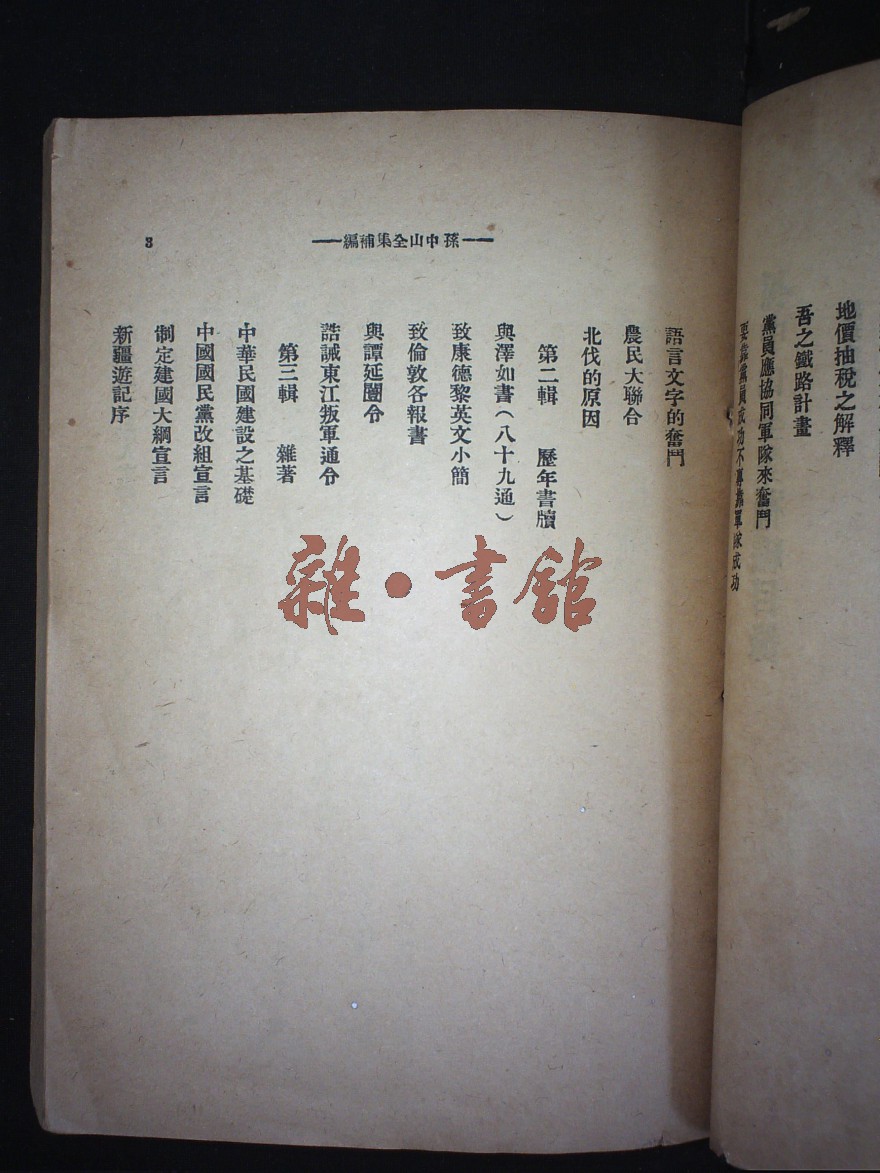 地價抽稅之解釋
吾之鐵路計畫
黨員應協同軍隊來奮鬥
要靠黨員成功不專靠軍隊成功
——孫中山全集補編——
3
語言文字的奮鬥
農民大聯合
北伐的原因
第二輯 歷年書牘
與澤如書(八十九通)
致康德黎英文小簡
致倫敦各報書
與譚延闓令
誥誡東江叛軍通令
第三輯 雜著
中華民國建設之基礎
中國國民黨改組宣言
制定建國大綱宣言
新疆遊記序
雜·書館